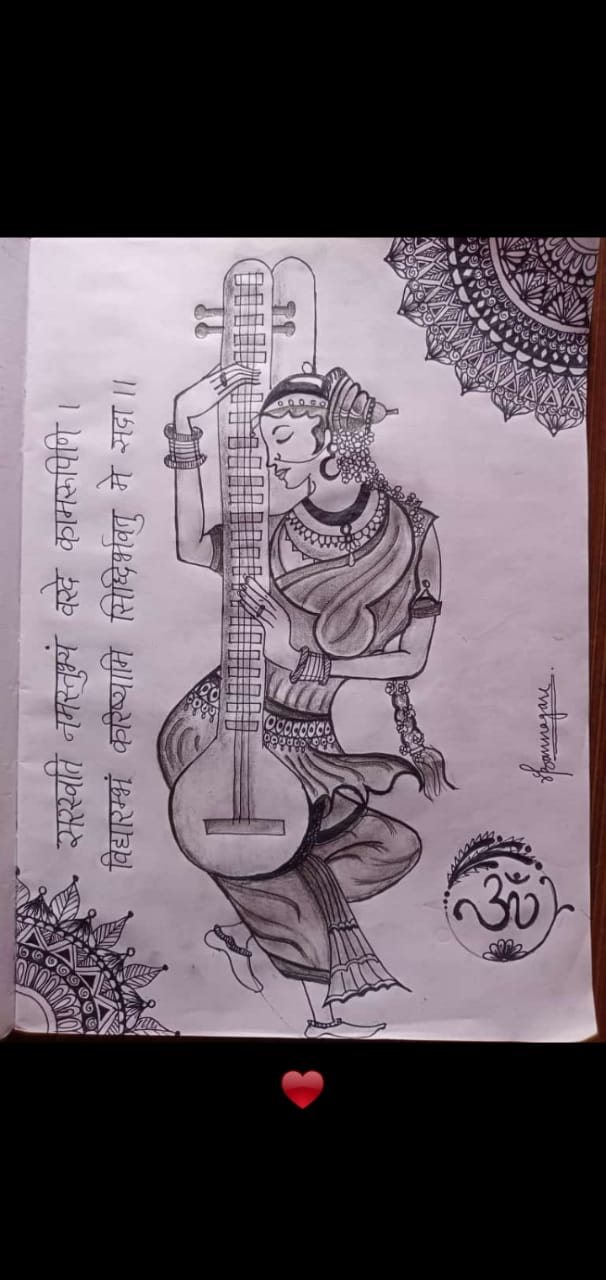 सरस्वति नमस्तुभ्यं वरदे कामरूपिणि ।
विद्यारम्भं करिष्यामि सिद्धिर्भवतु मे सदा ॥
ॐ